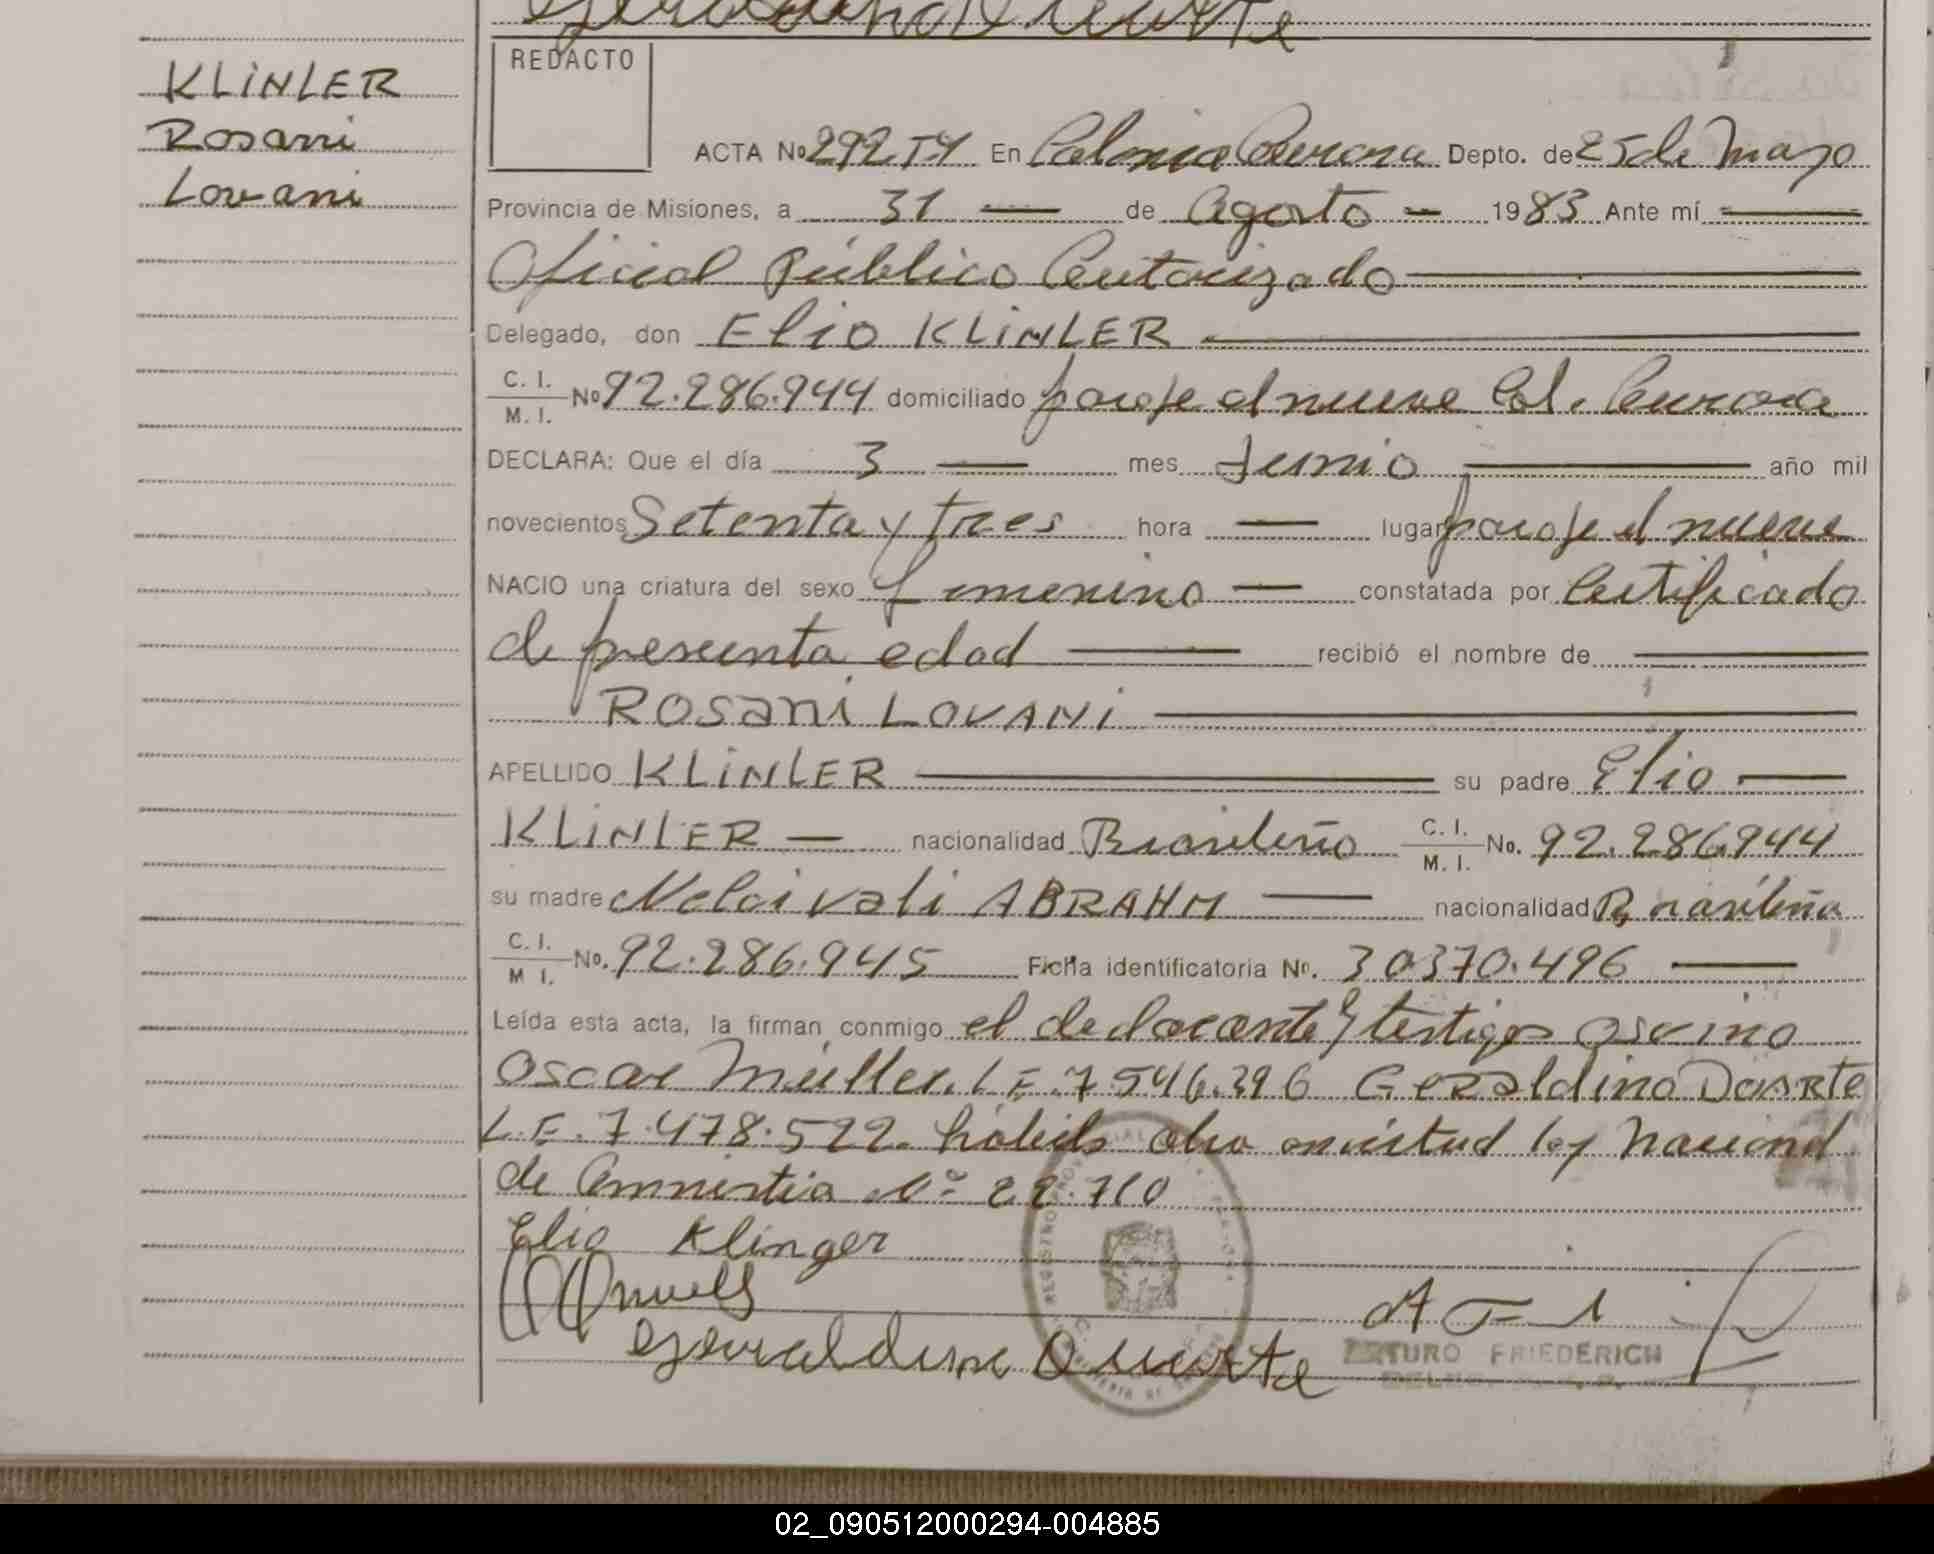 Duarte
KLINLER
Rosani
Lovani
REDACTO
ACTA No 292 T4 En Colonia Aurora Depto. de 25 de Mayo
Provincia de Misiones, a 31 — de Agosto — 1983 Ante mí —
Oficial Público Autorizado —
Delegado, don Elio KLINLER —
C. I. / M. I. No 92.286.944 domiciliado paraje el nueve Col. Aurora
DECLARA: Que el día 3 — mes Junio — año mil
novecientos Setenta y tres hora — lugar paraje el nueve
NACIO una criatura del sexo femenino — constatada por Certificado
de presunta edad — recibió el nombre de —
ROSANI LOVANI —
APELLIDO KLINLER — su padre Elio —
KLINLER — nacionalidad Brasileño C. I. / M. I. No. 92.286.944
su madre Neloi vali ABRAHM — nacionalidad Brasileña
C. I. / M I. No. 92.286.945 Ficha identificatoria No. 30370.496 —
Leída esta acta, la firman conmigo el declarante y testigos Osvino
Oscar Müller L.E. 7.546.396 GERALDINO DUARTE
L.E. 7.478.522. hábiles ley Nacional
de Amnistia Nº 22.710
Elio Klinger
Duarte
ARTURO FRIEDERICH
02_090512000294-004885